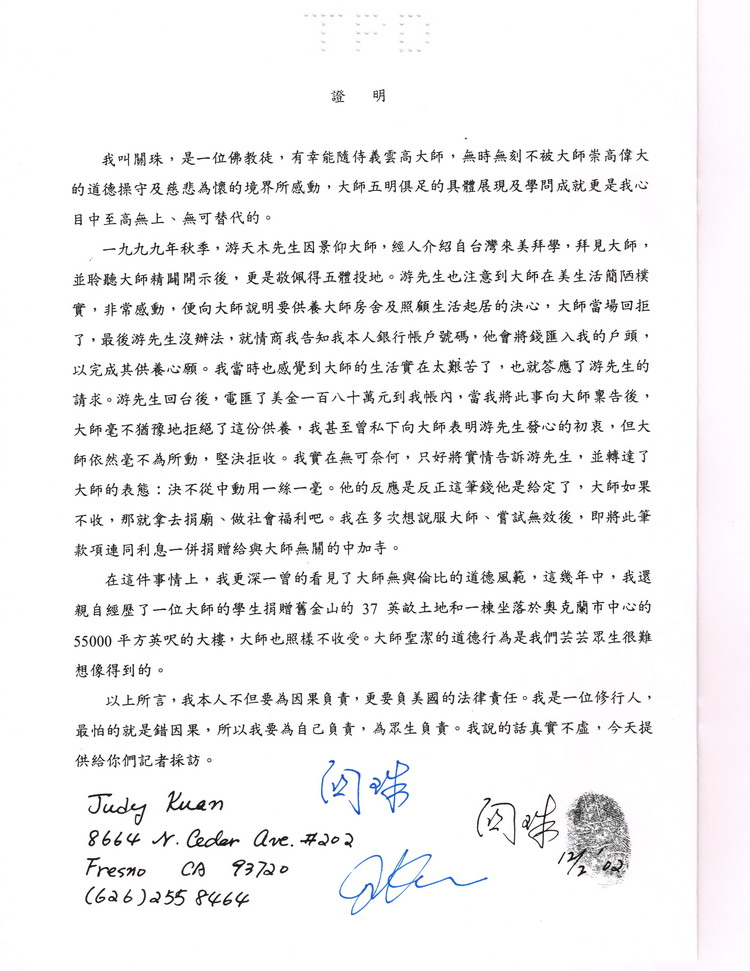 TFD
證 明
我叫關珠，是一位佛教徒，有幸能隨侍義雲高大師，無時無刻不被大師崇高偉大
的道德操守及慈悲為懷的境界所感動，大師五明俱足的具體展現及學問成就更是我心
目中至高無上、無可替代的。
一九九九年秋季，游天木先生因景仰大師，經人介紹自台灣來美拜學，拜見大師，
並聆聽大師精闢開示後，更是敬佩得五體投地。游先生也注意到大師在美生活簡陋樸
實，非常感動，便向大師說明要供養大師房舍及照顧生活起居的決心，大師當場回拒
了，最後游先生沒辦法，就情商我告知我本人銀行帳戶號碼，他會將錢匯入我的戶頭，
以完成其供養心願。我當時也感覺到大師的生活實在太艱苦了，也就答應了游先生的
請求。游先生回台後，電匯了美金一百八十萬元到我帳內，當我將此事向大師稟告後，
大師毫不猶豫地拒絕了這份供養，我甚至曾私下向大師表明游先生發心的初衷，但大
師依然毫不為所動，堅決拒收。我實在無可奈何，只好將實情告訴游先生，並轉達了
大師的表態：決不從中動用一絲一毫。他的反應是反正這筆錢他是給定了，大師如果
不收，那就拿去捐廟、做社會福利吧。我在多次想說服大師、嘗試無效後，即將此筆
款項連同利息一併捐贈給與大師無關的中加寺。
在這件事情上，我更深一曾的看見了大師無與倫比的道德風範，這幾年中，我還
親自經歷了一位大師的學生捐贈舊金山的 37 英畝土地和一棟坐落於奧克蘭市中心的
55000 平方英呎的大樓，大師也照樣不收受。大師聖潔的道德行為是我們芸芸眾生很難
想像得到的。
以上所言，我本人不但要為因果負責，更要負美國的法律責任。我是一位修行人，
最怕的就是錯因果，所以我要為自己負責，為眾生負責。我說的話真實不虛，今天提
供給你們記者採訪。
关珠
Judy Kuan
8664 N. Cedar Ave. #202
Fresno CA 93720
(626) 255 8464
关珠
12/2 '02